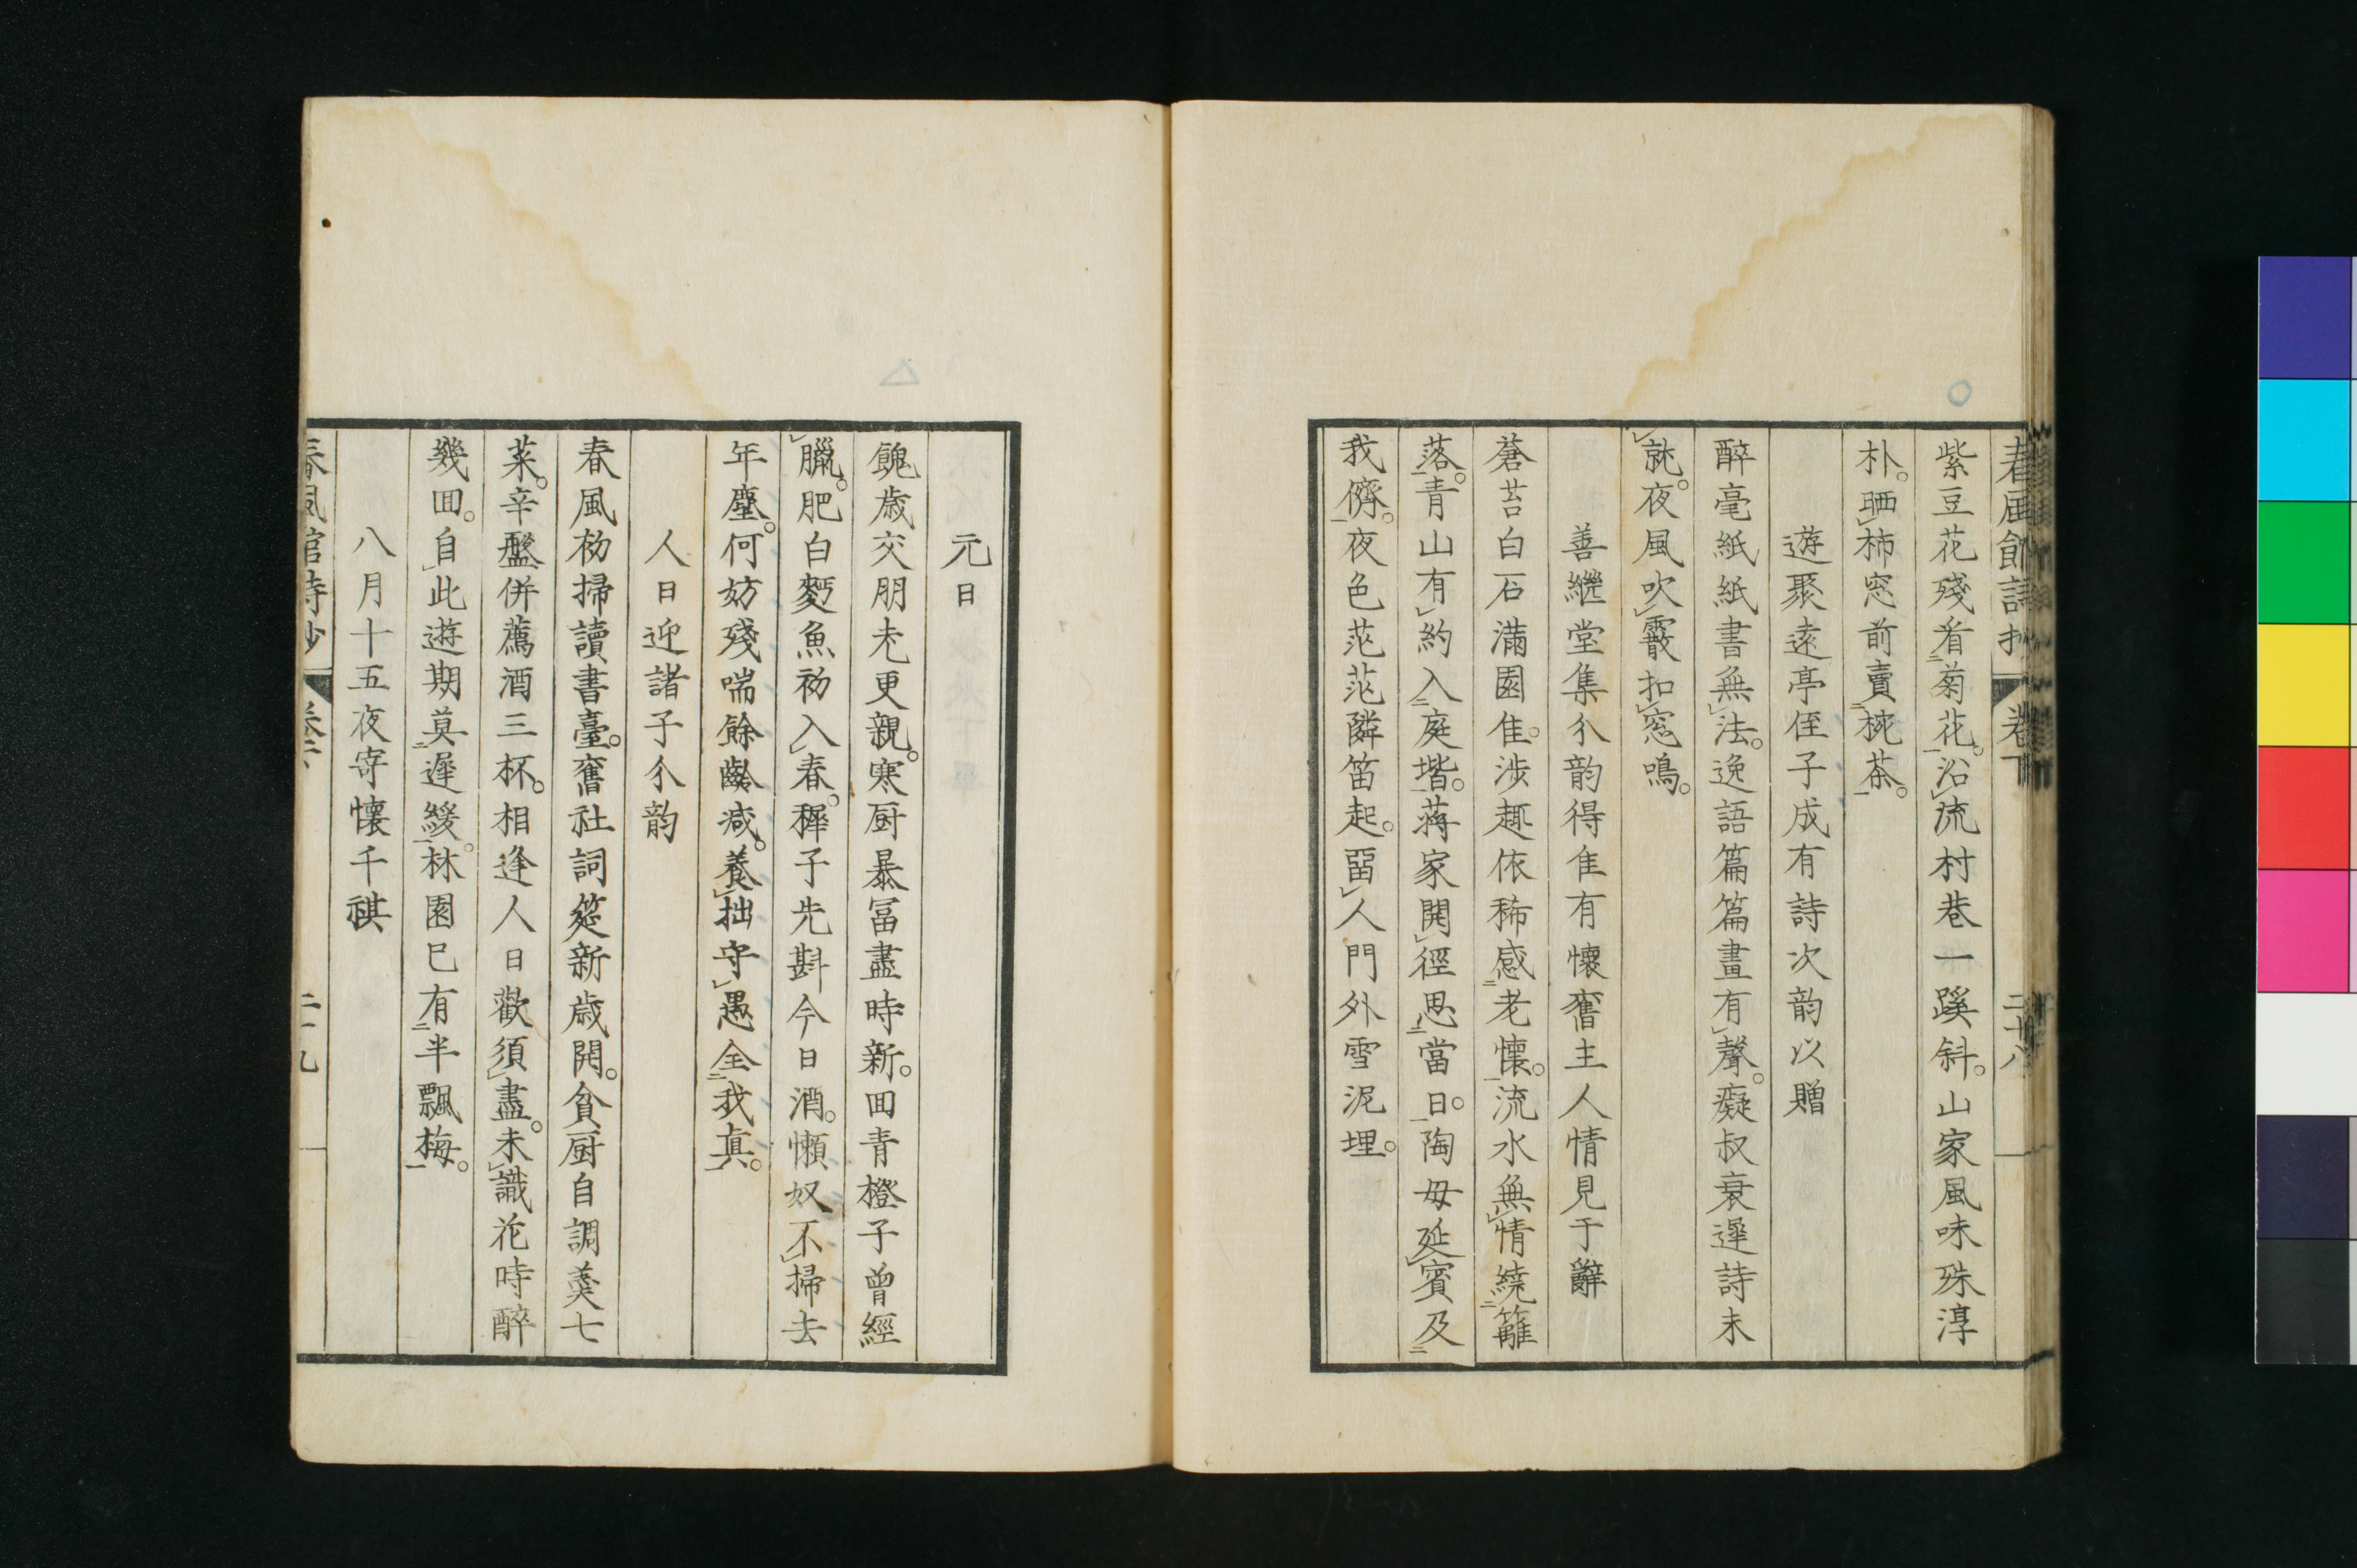 春風館詩抄 卷下 二十八
紫豆花殘看菊花。沿流村巷一蹊斜。山家風味殊淳
朴。晒柿窓前賣椀茶。
遊聚遠亭侄子成有詩次韵以贈
醉毫紙紙書無法。逸語篇篇畫有聲。癡叔衰遲詩未
就。夜風吹霰扣窓鳴。
善繼堂集分韵得佳有懷舊主人情見于辭
蒼苔白石滿園佳。涉趣依稀感老懷。流水無情繞籬
落。青山有約入庭堦。蔣家開徑思當日。陶母延賓及
我儕。夜色茫茫隣笛起。留人門外雪泥埋。
元日
餽歲交朋尤更親。寒厨暴冨盡時新。回青橙子曾經
臘。肥白麪魚初入春。穉子先斟今日酒。懶奴不掃去
年塵。何妨殘喘餘齡減。養拙守愚全我真。
人日迎諸子分韵
春風初掃讀書臺。舊社詞筵新歲開。貧厨自調羹七
菜。辛盤併薦酒三杯。相逢人日歡須盡。未識花時醉
幾回。自此遊期莫遲緩。林園已有半飄梅。
八月十五夜寄懷千祺
春風館詩抄 卷下 二十九